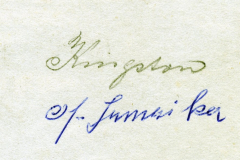 Kingston
of Jumaika